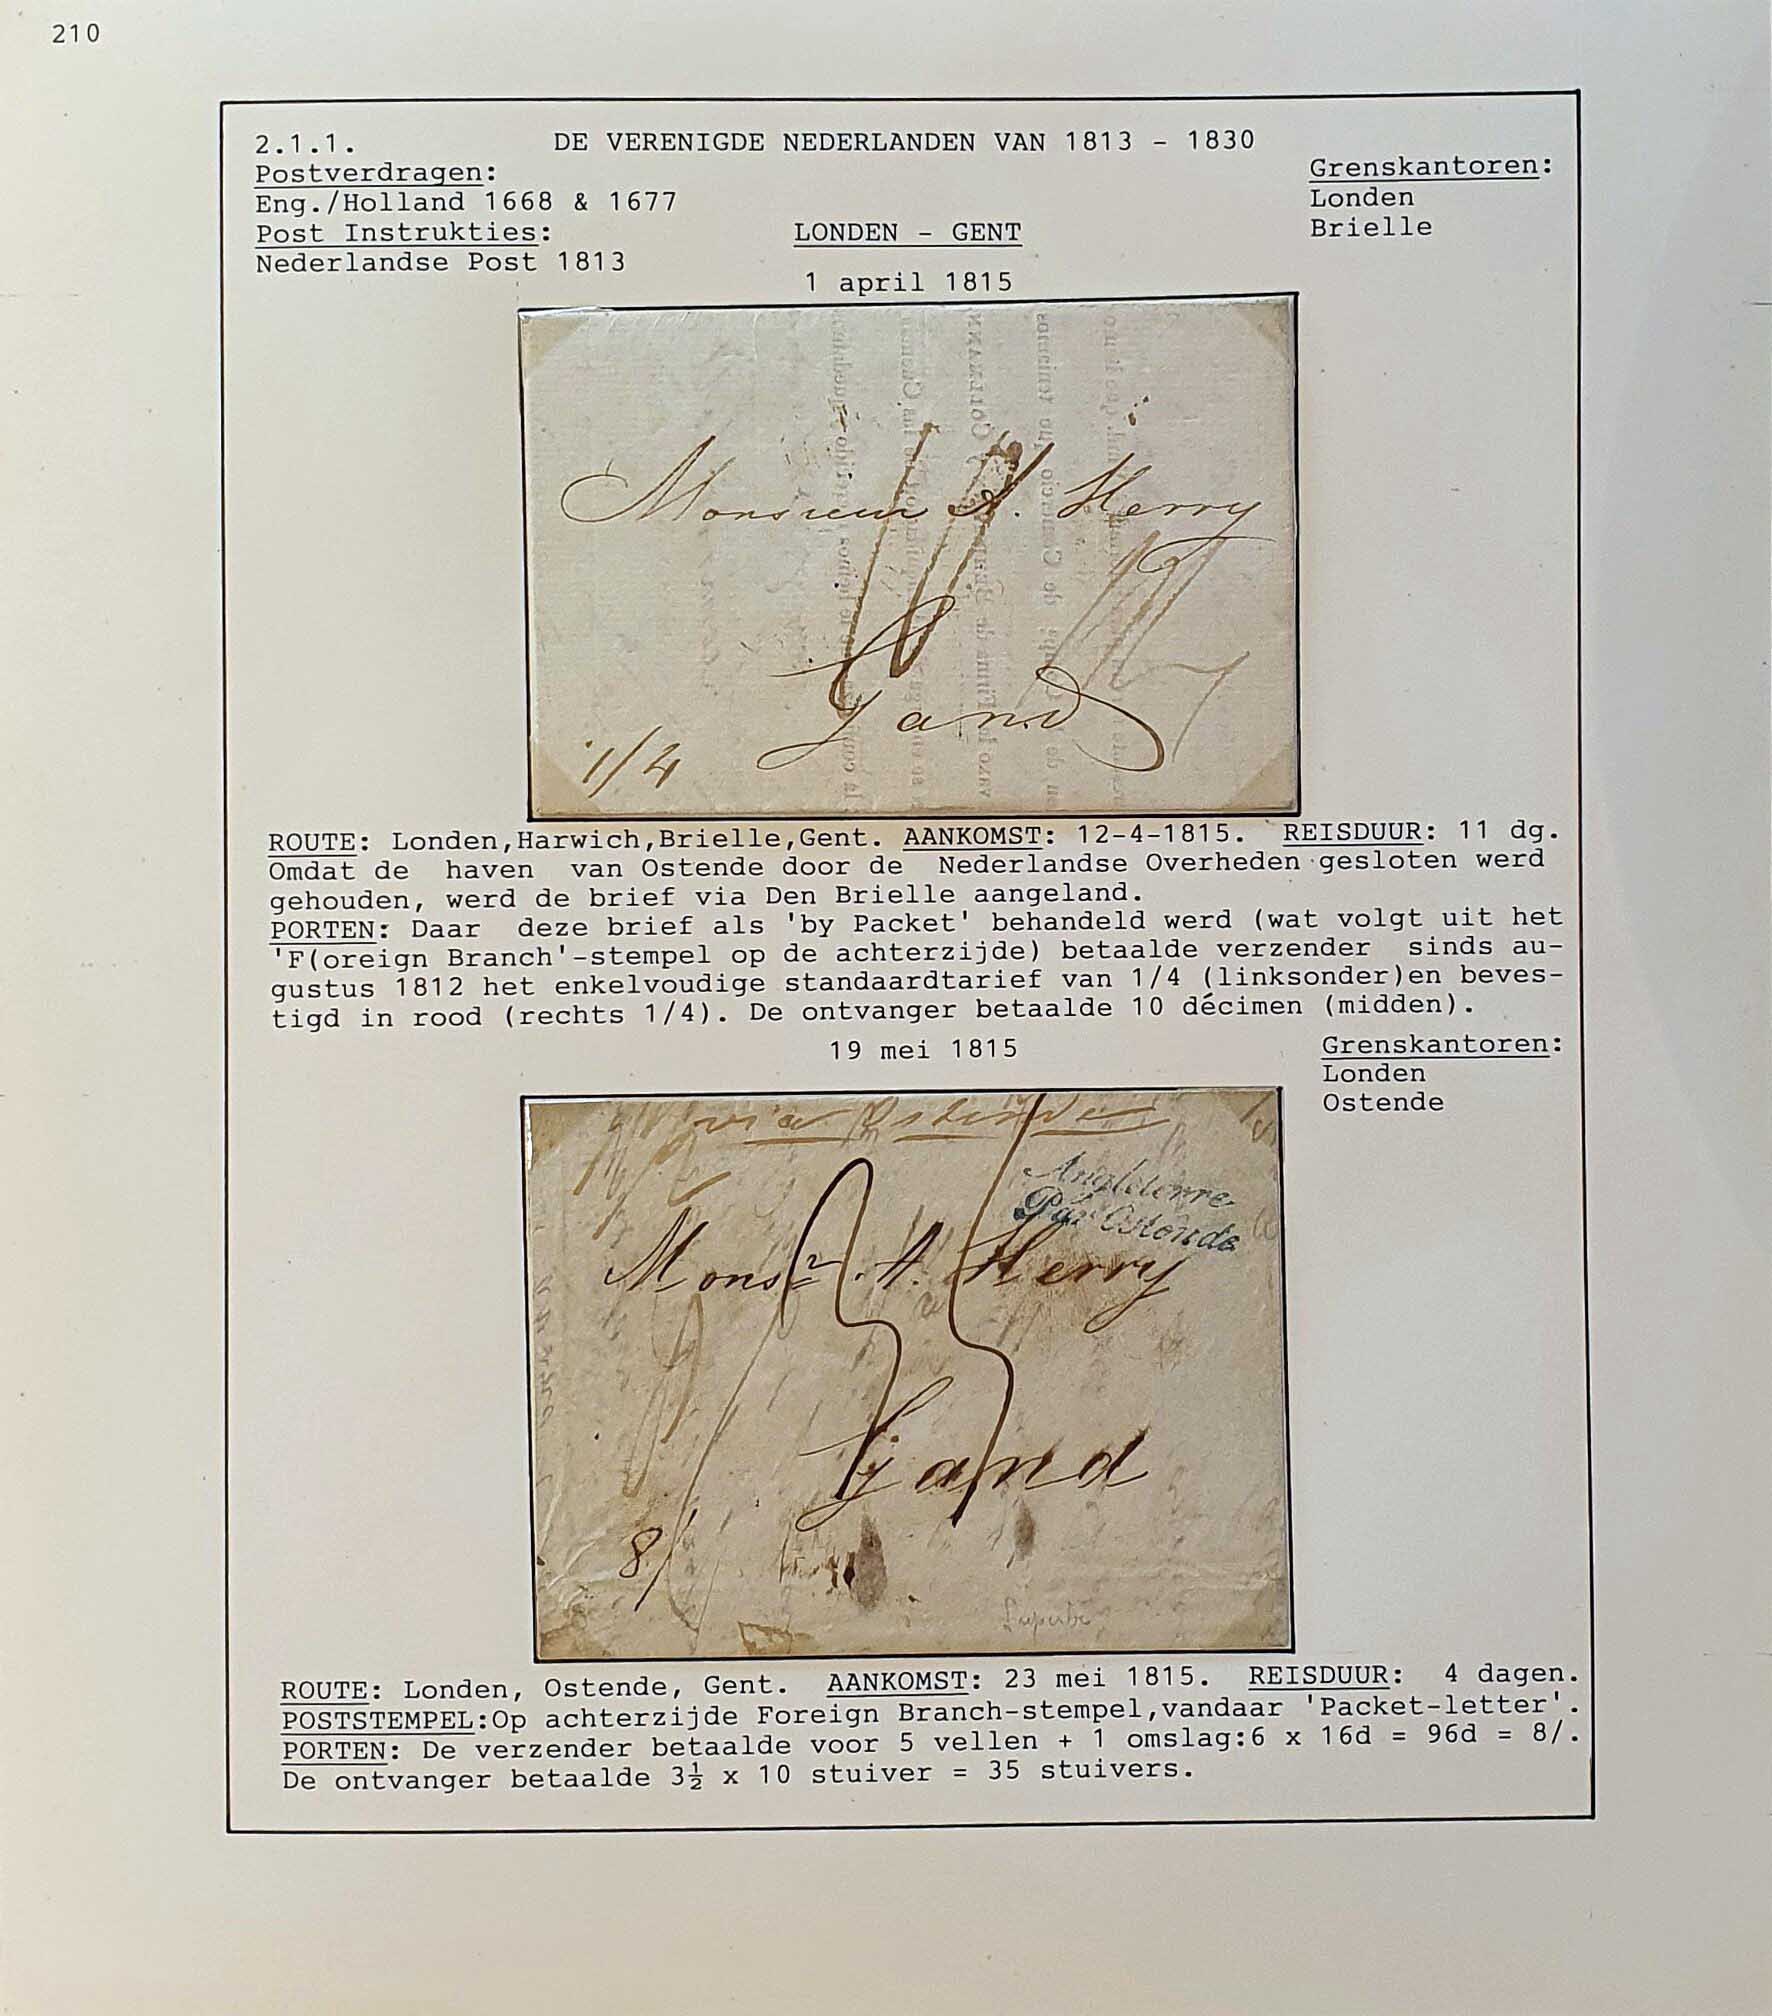 210
2.1.1. DE VERENIGDE NEDERLANDEN VAN 1813 - 1830
Postverdragen:
Eng./Holland 1668 & 1677
Post Instrukties:
Nederlandse Post 1813
Grenskantoren:
Londen
Brielle
LONDEN - GENT
1 april 1815
Monsieur A. Herry
Gand
1/4
ROUTE: Londen,Harwich,Brielle,Gent. AANKOMST: 12-4-1815. REISDUUR: 11 dg.
Omdat de haven van Ostende door de Nederlandse Overheden gesloten werd
gehouden, werd de brief via Den Brielle aangeland.
PORTEN: Daar deze brief als 'by Packet' behandeld werd (wat volgt uit het
'F(oreign Branch'-stempel op de achterzijde) betaalde verzender sinds au-
gustus 1812 het enkelvoudige standaardtarief van 1/4 (linksonder)en beves-
tigd in rood (rechts 1/4). De ontvanger betaalde 10 décimen (midden).
19 mei 1815
Grenskantoren:
Londen
Ostende
via Ostende
Angleterre
Par Ostende
Monsr. A. Herry
Gand
8/
ROUTE: Londen, Ostende, Gent. AANKOMST: 23 mei 1815. REISDUUR: 4 dagen.
POSTSTEMPEL:Op achterzijde Foreign Branch-stempel,vandaar 'Packet-letter'.
PORTEN: De verzender betaalde voor 5 vellen + 1 omslag:6 x 16d = 96d = 8/.
De ontvanger betaalde 3½ x 10 stuiver = 35 stuivers.